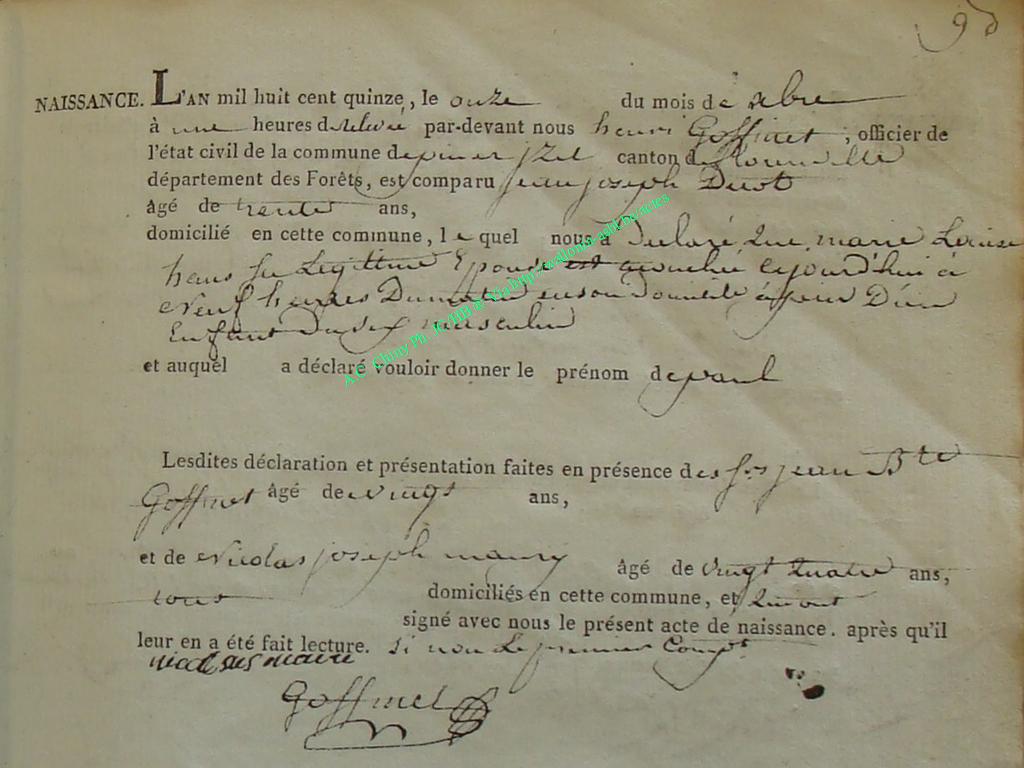 9
NAISSANCE. L'AN mil huit cent quinze, le onze du mois de xbre
à une heures de relevée par-devant nous henri Goffinet, officier de
l'état civil de la commune de pin et izel canton de florenville
département des Forêts, est comparu jean joseph
âgé de trente ans,
domicilié en cette commune, lequel nous a Declaré Que marie Louise
hans sa Legitime Epouse est acouchée ajourd'hui à
Neuf heures Dumatin en son domicile à pin D'un
Enfant du sex masculin
et auquel a déclaré vouloir donner le prénom de paul
Lesdites déclaration et présentation faites en présence des srs jean Bte
Goffinet âgé de vingt ans,
et de Nicolas joseph maury âgé de vingt quatre ans,
tous domiciliés en cette commune, et qui ont
signé avec nous le présent acte de naissance. après qu'il
leur en a été fait lecture. si non Le premier Compt
Goffinet